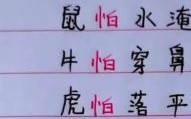 鼠怕水淹
牛怕穿鼻
虎怕落平